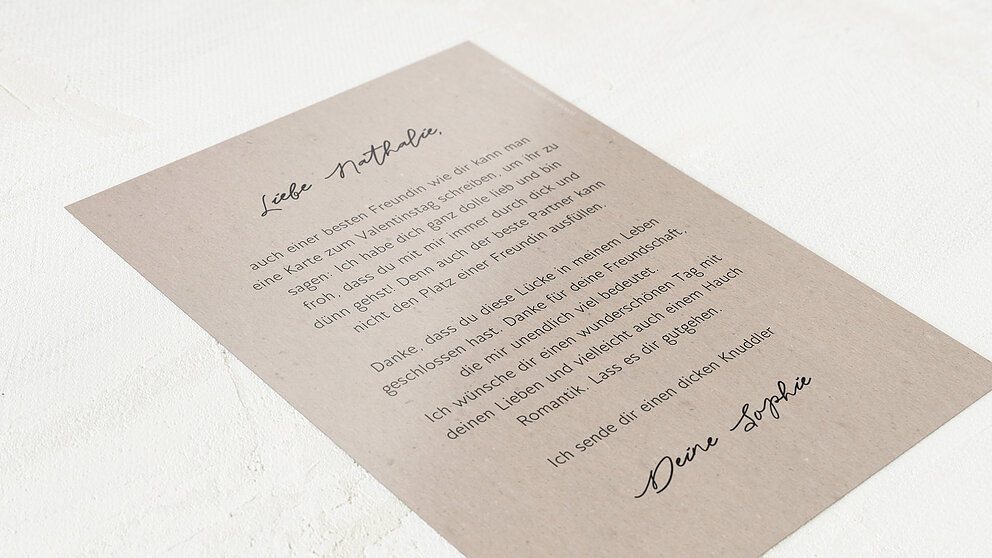 Liebe Nathalie,
auch einer besten Freundin wie dir kann man
eine Karte zum Valentinstag schreiben, um ihr zu
sagen: Ich habe dich ganz dolle lieb und bin
froh, dass du mit mir immer durch dick und
dünn gehst! Denn auch der beste Partner kann
nicht den Platz einer Freundin ausfüllen.
Danke, dass du diese Lücke in meinem Leben
geschlossen hast. Danke für deine Freundschaft,
die mir unendlich viel bedeutet.
Ich wünsche dir einen wunderschönen Tag mit
deinen Lieben und vielleicht auch einem Hauch
Romantik. Lass es dir gutgehen.
Ich sende dir einen dicken Knuddler
Deine Sophie